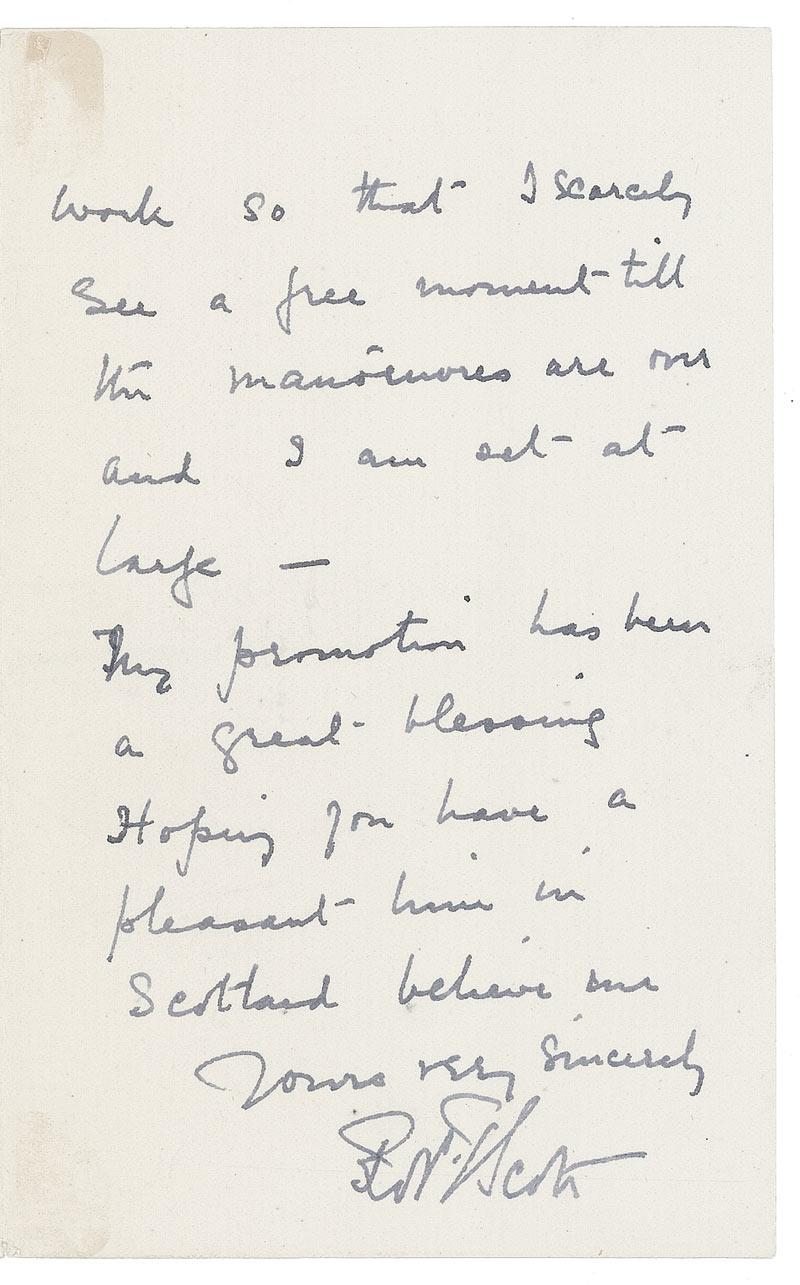 work so that I scarcely
see a free moment till
the manoeuvres are over
and I am set at
large —
My promotion has been
a great blessing
Hoping you have a
pleasant time in
Scotland believe me
Yours very sincerely
RobtFScott